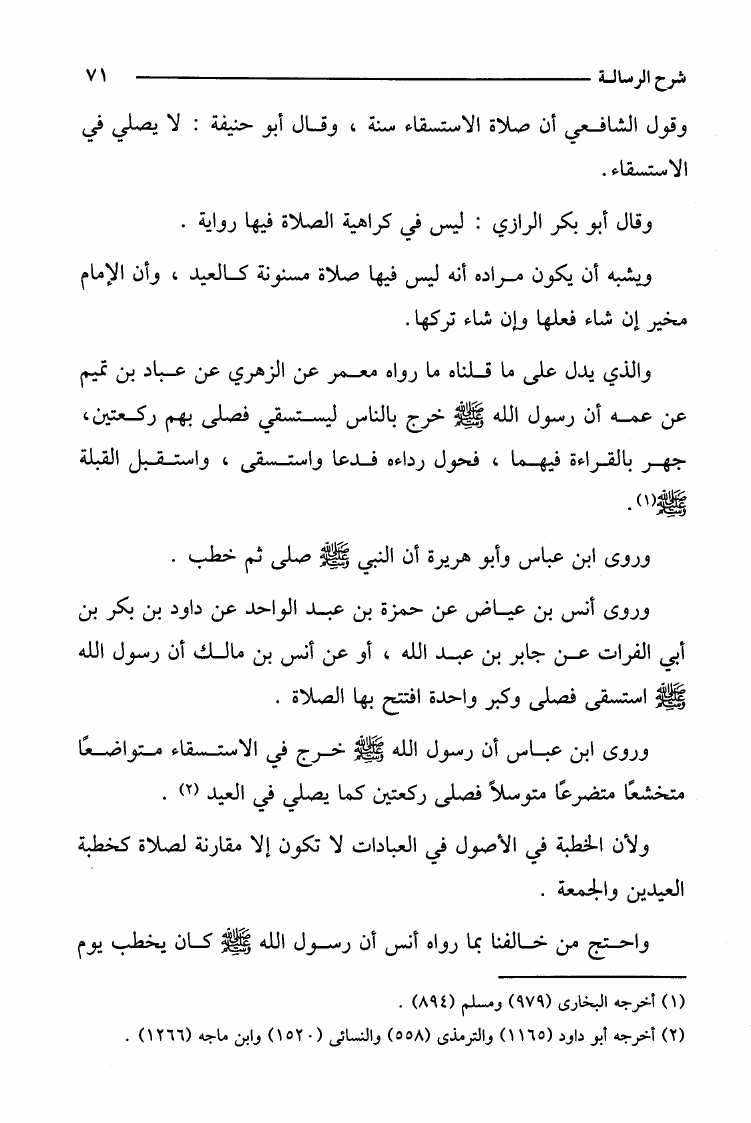 شرح الرسالة ٧١
وقول الشافعي أن صلاة الاستسقاء سنة ، وقال أبو حنيفة : لا يصلي في
الاستسقاء.
وقال أبو بكر الرازي : ليس في كراهية الصلاة فيها رواية .
ويشبه أن يكون مراده أنه ليس فيها صلاة مسنونة كالعيد ، وأن الإمام
مخير إن شاء فعلها وإن شاء تركها.
والذي يدل على ما قلناه ما رواه معمر عن الزهري عن عباد بن تميم
عن عمه أن رسول الله ﷺ خرج بالناس ليستسقي فصلى بهم ركعتين،
جهر بالقراءة فيهما ، فحول رداءه فدعا واستسقى ، واستقبل القبلة
ﷺ(١) .
وروى ابن عباس وأبو هريرة أن النبي ﷺ صلى ثم خطب .
وروى أنس بن عياض عن حمزة بن عبد الواحد عن داود بن بكر بن
أبي الفرات عن جابر بن عبد الله ، أو عن أنس بن مالك أن رسول الله
ﷺ استسقى فصلى وكبر واحدة افتتح بها الصلاة .
وروى ابن عباس أن رسول الله ﷺ خرج في الاستسقاء متواضعًا
متخشعًا متضرعًا متوسلاً فصلى ركعتين كما يصلي في العيد (٢) .
ولأن الخطبة في الأصول في العبادات لا تكون إلا مقارنة لصلاة كخطبة
العيدين والجمعة .
واحتج من خالفنا بما رواه أنس أن رسول الله ﷺ كان يخطب يوم
(١) أخرجه البخارى (٩٧٩) ومسلم (٨٩٤) .
(٢) أخرجه أبو داود (١١٦٥) والترمذى (٥٥٨) والنسائى (١٥٢٠) وابن ماجه (١٢٦٦) .